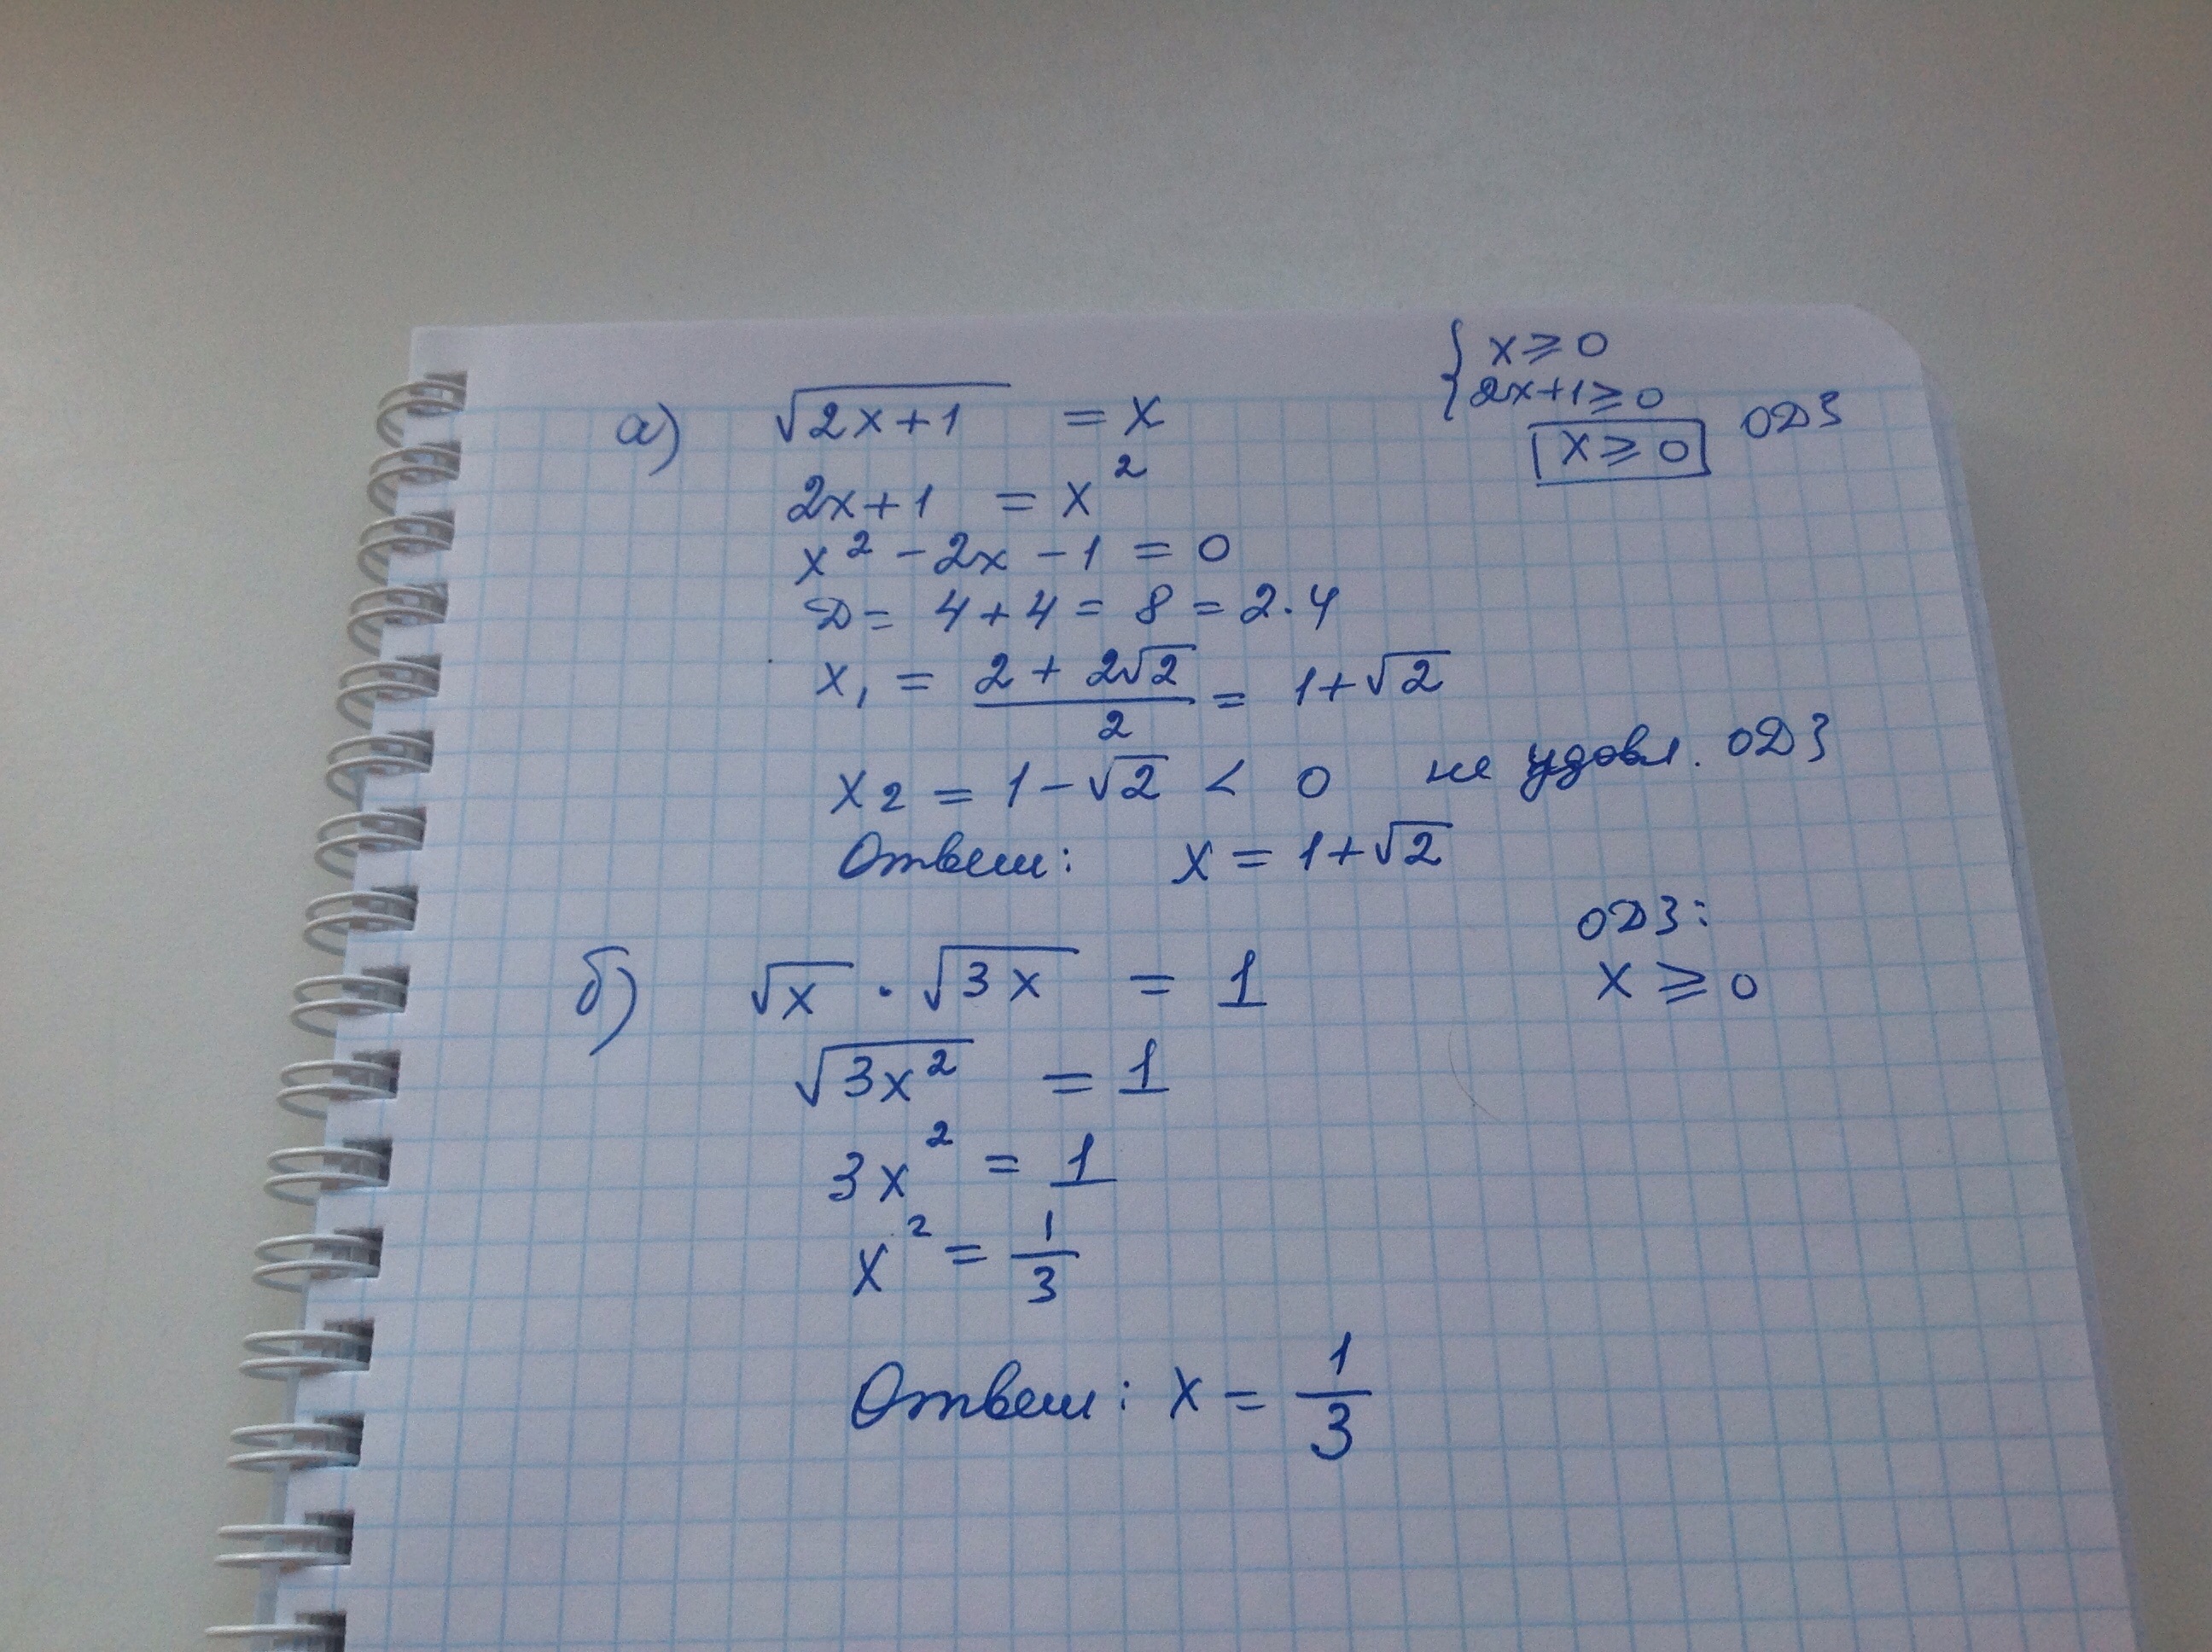 а) √(2x+1) = x
{ x ⩾ 0
2x+1 ⩾ 0
x ⩾ 0 ОДЗ
2x+1 = x²
x² - 2x - 1 = 0
D = 4 + 4 = 8 = 2·4
x₁ = (2 + 2√2)/2 = 1+√2
x₂ = 1-√2 < 0 не удовл. ОДЗ
Ответ: x = 1+√2
б) √x · √(3x) = 1
ОДЗ:
x ⩾ 0
√(3x²) = 1
3x² = 1
x² = 1/3
Ответ: x = 1/3